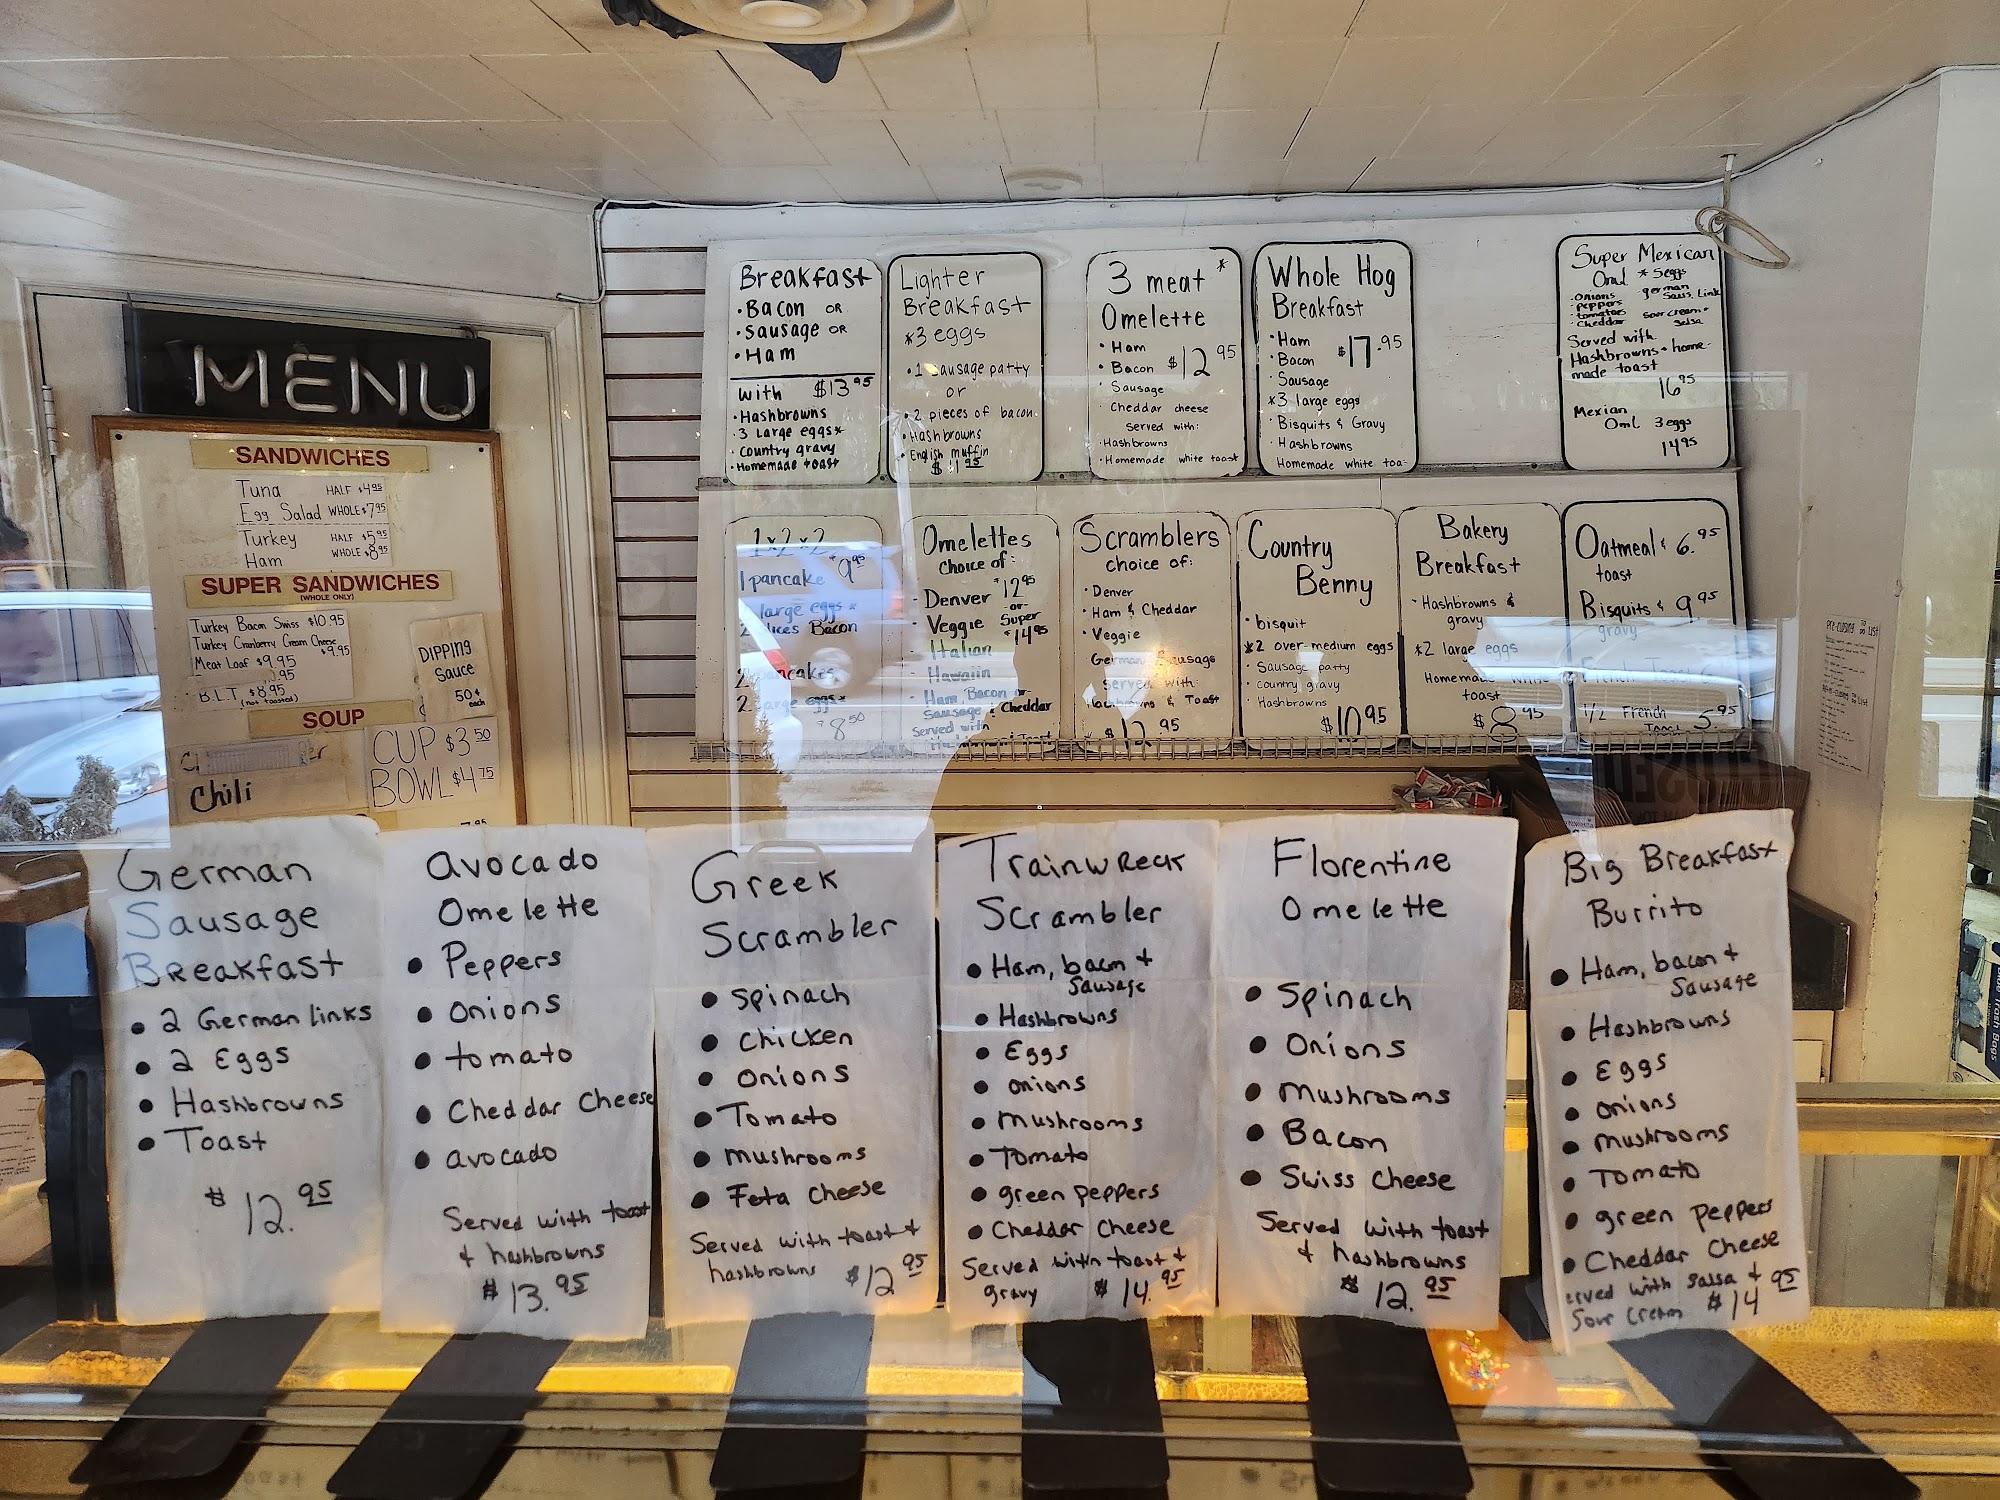 MENU
SANDWICHES
Tuna HALF $4.95
Egg Salad WHOLE $7.95
Turkey HALF $5.95
Ham WHOLE $8.95
SUPER SANDWICHES
(WHOLE ONLY)
Turkey Bacon Swiss $10.95
Turkey Cranberry Cream Cheese
$9.95
Meat Loaf $9.95
B.L.T. $8.95
(not toasted)
DIPPING
Sauce
50¢
each
SOUP
Chili
CUP $3.50
BOWL $4.75
Breakfast
• Bacon OR
• Sausage OR
• Ham
With $13.95
• Hashbrowns
• 3 Large eggs*
• Country gravy
• Homemade toast
Lighter
Breakfast
*3 eggs
• 1 Sausage patty
or
• 2 pieces of bacon
• Hashbrowns
• English muffin
3 meat *
Omelette
• Ham
• Bacon $12.95
• Sausage
Cheddar cheese
Served with:
• Hashbrowns
• Homemade white toast
Whole Hog
Breakfast
• Ham
• Bacon $17.95
• Sausage
*3 large eggs
• Bisquits & Gravy
• Hashbrowns
Homemade white toa
Super Mexican
Oml *5 eggs
• onions
• peppers
• tomatoes
• Cheddar
german
Saus. Link
Sour cream +
Salsa
Served with
Hashbrowns + home-
made toast
16.95
Mexian
Oml 3 eggs
14.95
1 x 2 x 2
1 pancake $9.95
large eggs *
Bacon
2 pancakes
2 large eggs *
$8.50
Omelettes
Choice of:
- Denver $12.95
-or-
- Veggie Super
$14.95
- Italian
- Hawaiin
- Ham, Bacon or
Sausage & Cheddar
Served with
Scramblers
choice of:
• Denver
• Ham & Cheddar
• Veggie
German Sausage
Served with:
Hashbrowns & Toast
Country
Benny
• bisquit
*2 over-medium eggs
• Sausage patty
• country gravy
• Hashbrowns
$10.95
Bakery
Breakfast
• Hashbrowns &
gravy
*2 large eggs
Homemade white
toast
$8.95
Oatmeal & 6.95
toast
Bisquits & 9.95
gravy
French Toast
1/2 French
Toast 5.95
German
Sausage
Breakfast
• 2 German links
• 2 Eggs
• Hashbrowns
• Toast
$12.95
Avocado
Omelette
• Peppers
• Onions
• tomato
• Cheddar Cheese
• avocado
Served with toast
& hashbrowns
$13.95
Greek
Scrambler
• Spinach
• Chicken
• Onions
• Tomato
• mushrooms
• Feta Cheese
Served with toast &
hashbrowns $12.95
Trainwreck
Scrambler
• Ham, bacon +
Sausage
• Hashbrowns
• Eggs
• onions
• mushrooms
• Tomato
• green peppers
• Cheddar Cheese
Served with toast +
gravy $14.95
Florentine
Omelette
• Spinach
• Onions
• Mushrooms
• Bacon
• Swiss Cheese
Served with toast
& hashbrowns
$12.95
Big Breakfast
Burrito
• Ham, bacon &
Sausage
• Hashbrowns
• Eggs
• onions
• mushrooms
• Tomato
• green peppers
• Cheddar Cheese
erved with salsa +
Sour Cream $14.95